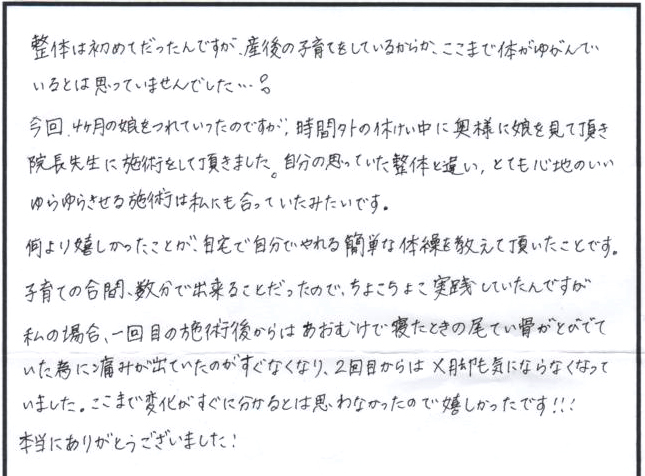 整体は初めてだったんですが、産後の子育てをしているからか、ここまで体がゆがんで
いるとは思っていませんでした…。
今回、4ヶ月の娘をつれていったのですが、時間外の休けい中に奥様に娘を見て頂き
院長先生に施術をして頂きました。自分の思っていた整体と違い、とても心地のいい
ゆらゆらさせる施術は私にも合っていたみたいです。
何より嬉しかったことが、自宅で自分でやれる簡単な体操を教えて頂いたことです。
子育ての合間、数分で出来ることだったので、ちょこちょこ実践していたんですが
私の場合、一回目の施術後からはあおむけで寝たときの尾てい骨がとびでて
いた為に痛みが出ていたのがすぐなくなり、2回目からはX脚も気にならなくなって
いました。ここまで変化がすぐに分かるとは思わなかったので嬉しかったです!!!
本当にありがとうございました!